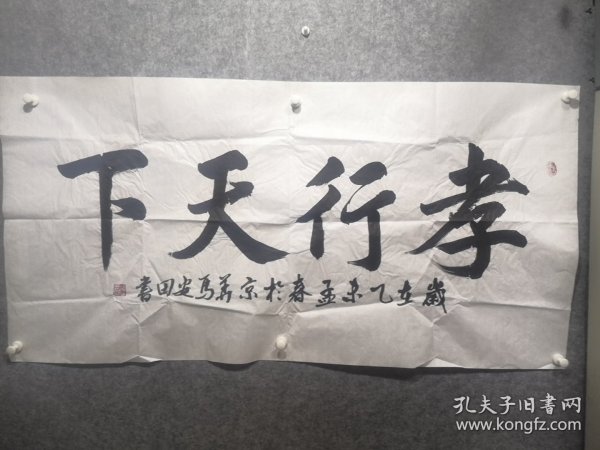 孝行天下
歲在乙未孟春於京華馬安田書
孔夫子旧書网
www.kongfz.com